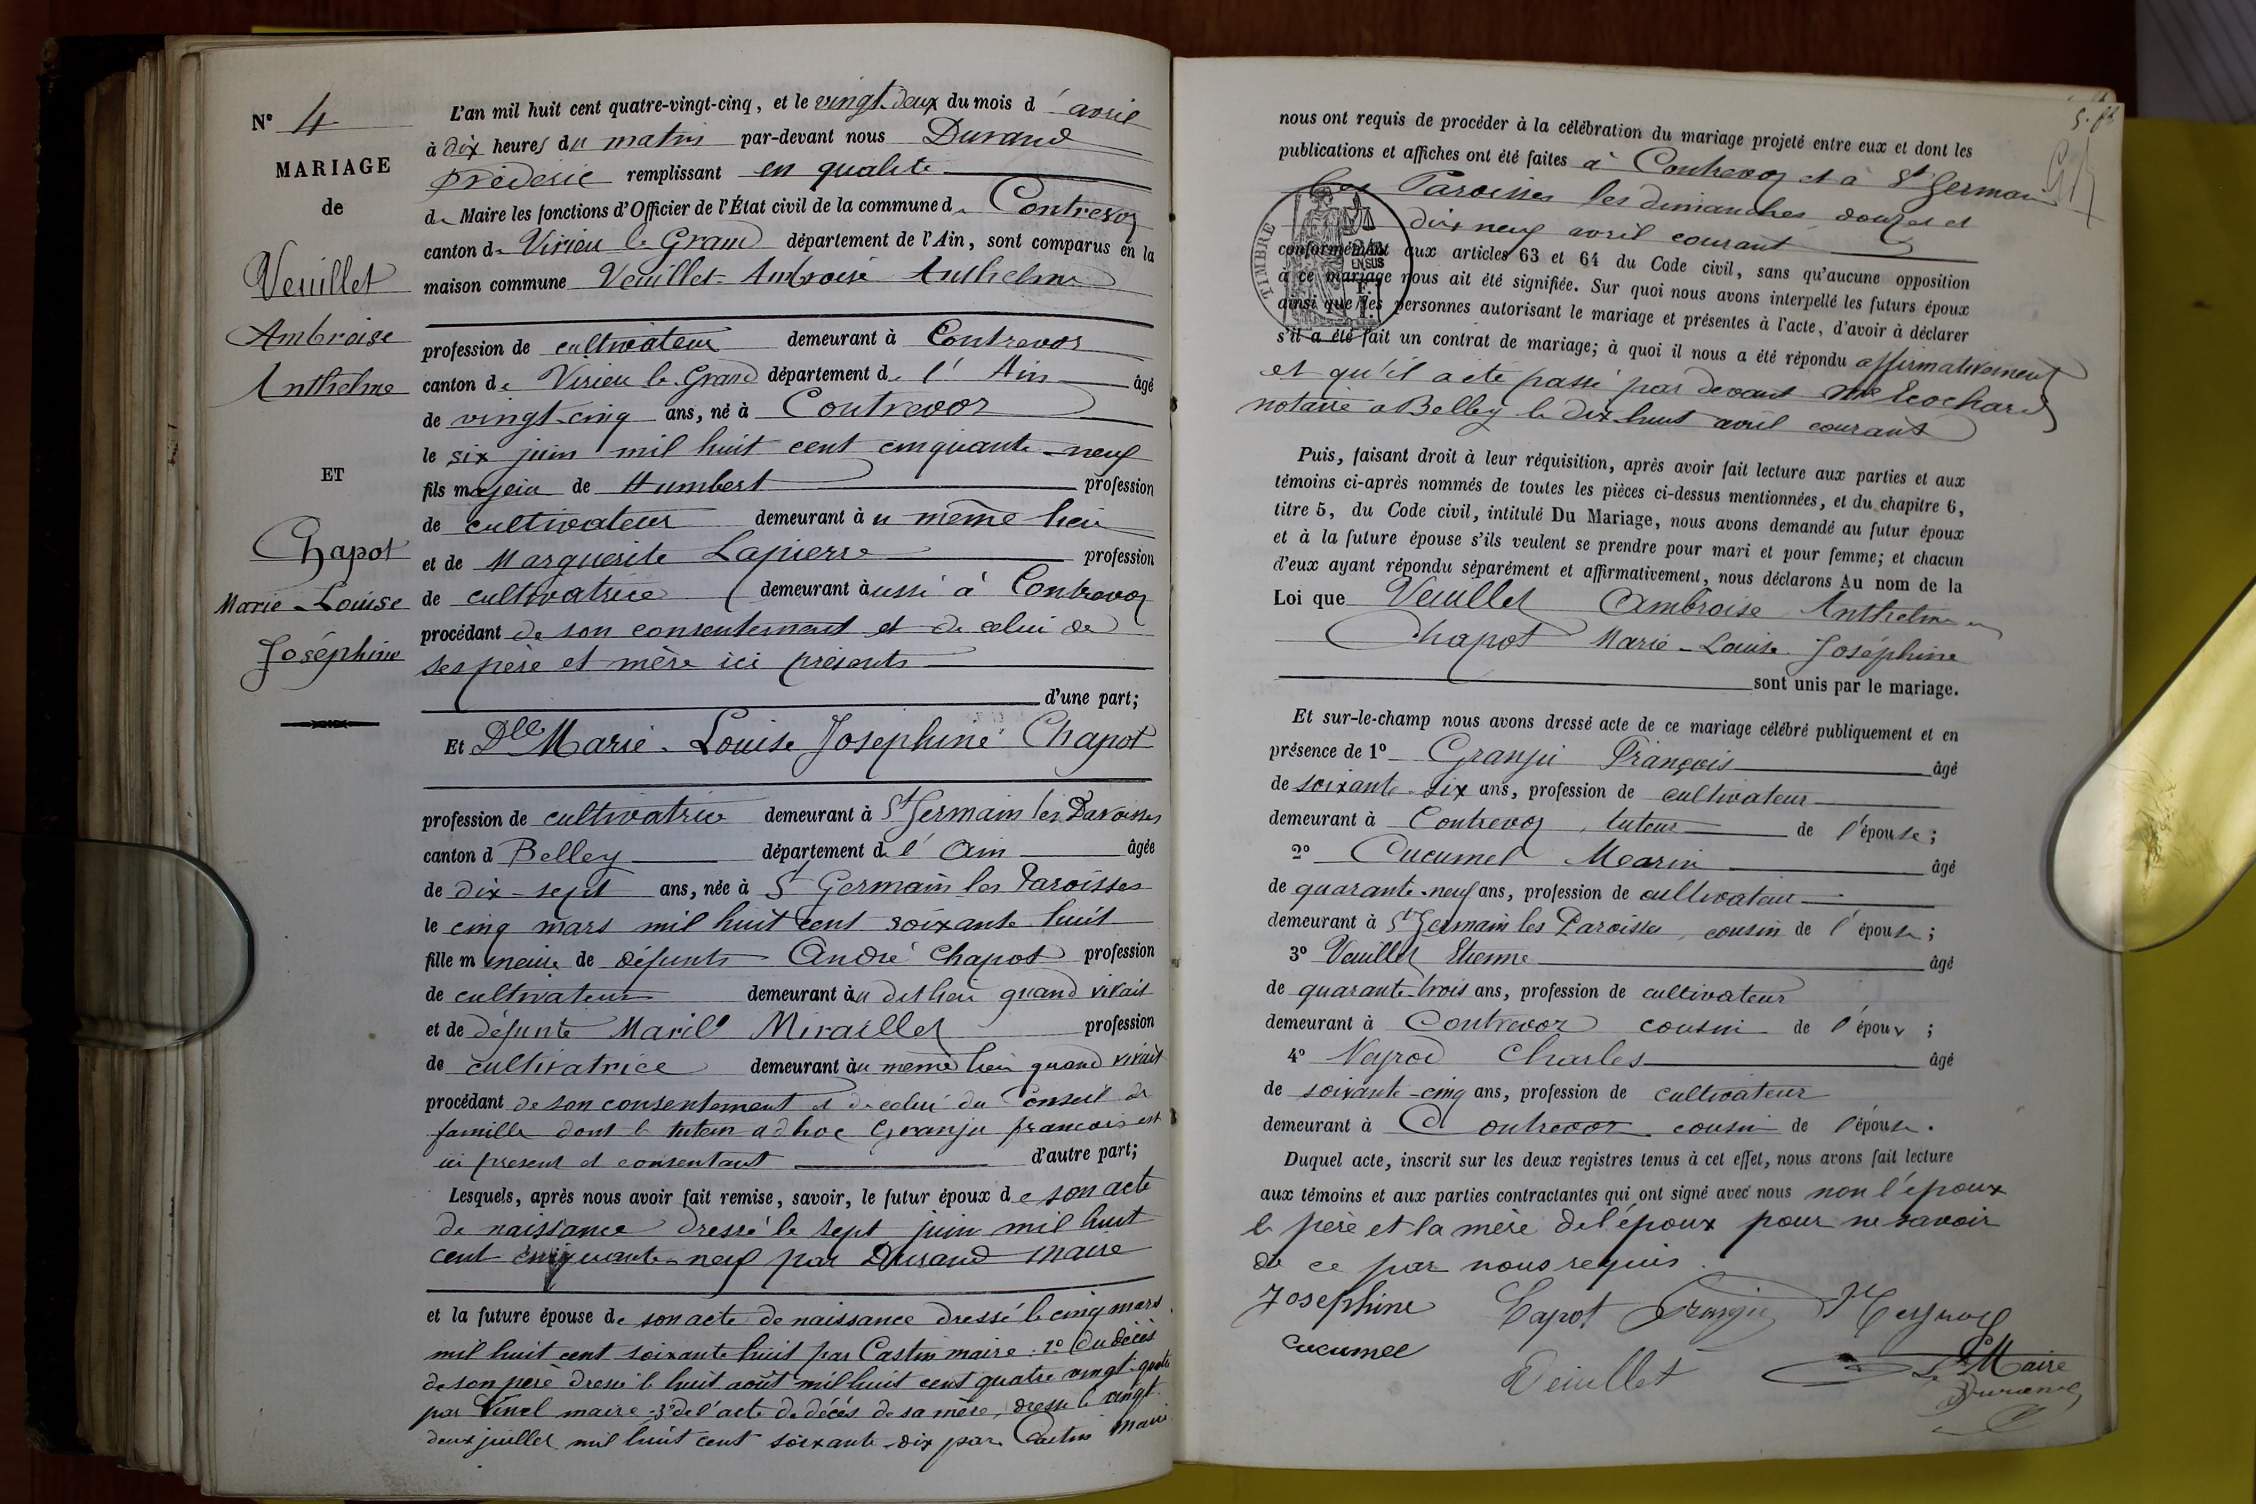 N° 4
MARIAGE
de
Veuillet
Ambroise
Anthelme
ET
Chapot
Marie-Louise
Joséphine
L'an mil huit cent quatre-vingt-cinq, et le vingt-deux du mois d'avril
à dix heures du matin par-devant nous Durand
Fréderic remplissant en qualité
de Maire les fonctions d'Officier de l'État civil de la commune de Contrevoz
canton de Virieu le Grand département de l'Ain, sont comparus en la
maison commune Veuillet Ambroise Anthelme
profession de cultivateur demeurant à Contrevoz
canton de Virieu le Grand département de l'Ain âgé
de vingt-cinq ans, né à Contrevoz
le six juin mil huit cent cinquante-neuf
fils majeur de Humbert profession
de cultivateur demeurant au même lieu
et de Marguerite Lapierre profession
de cultivatrice demeurant aussi à Contrevoz
procédant de son consentement et de celui de
ses père et mère ici présents
d'une part;
Et Dlle Marie-Louise Joséphine Chapot
profession de cultivatrice demeurant à St Germain les Paroisses
canton d Belley département de l'Ain âgée
de dix-sept ans, née à St Germain les Paroisses
le cinq mars mil huit cent soixante huit
fille mineure de défunts André Chapot profession
de cultivateur demeurant au dit lieu quand vivait
et de défunte Marie Miraillet profession
de cultivatrice demeurant au même lieu quand vivait
procédant de son consentement et de celui du Conseil de
famille dont le tuteur ad hoc Granju françois est
ici présent et consentant d'autre part;
Lesquels, après nous avoir fait remise, savoir, le futur époux de son acte
de naissance dressé le sept juin mil huit
cent cinquante-neuf par Durand maire
et la future épouse de son acte de naissance dressé le cinq mars
mil huit cent soixante huit par Castin maire. 2° du décès
de son père dressé le huit août mil huit cent quatre vingt-quatre
par maire 3° de l'acte de décès de sa mère, dressé le vingt
deux juillet mil huit cent soixante-dix par Castin maire
nous ont requis de procéder à la célébration du mariage projeté entre eux et dont les
publications et affiches ont été faites à Contrevoz et à St Germain
les Paroisses les dimanches douze et
dix neuf avril courant
conformément aux articles 63 et 64 du Code civil, sans qu'aucune opposition
à ce mariage nous ait été signifiée. Sur quoi nous avons interpellé les futurs époux
ainsi que les personnes autorisant le mariage et présentes à l'acte, d'avoir à déclarer
s'il a été fait un contrat de mariage; à quoi il nous a été répondu affirmativement
et qu'il a été passé par devant Me
notaire à Belley le dix huit avril courant
TIMBRE
EN SUS
Puis, faisant droit à leur réquisition, après avoir fait lecture aux parties et aux
témoins ci-après nommés de toutes les pièces ci-dessus mentionnées, et du chapitre 6,
titre 5, du Code civil, intitulé Du Mariage, nous avons demandé au futur époux
et à la future épouse s'ils veulent se prendre pour mari et pour femme; et chacun
d'eux ayant répondu séparément et affirmativement, nous déclarons Au nom de la
Loi que Veuillet Ambroise Anthelme et
Chapot Marie-Louise Joséphine
sont unis par le mariage.
Et sur-le-champ nous avons dressé acte de ce mariage célébré publiquement et en
présence de 1° Granju François âgé
de soixante-six ans, profession de cultivateur
demeurant à Contrevoz, tuteur de l'épouse;
2° Cucumel Marin âgé
de quarante-neuf ans, profession de cultivateur
demeurant à St Germain les Paroisses, cousin de l'épouse;
3° Veuillet Etienne âgé
de quarante-trois ans, profession de cultivateur
demeurant à Contrevoz cousin de l'époux;
4° Neyrod Charles âgé
de soixante-cinq ans, profession de cultivateur
demeurant à Contrevoz cousin de l'épouse.
Duquel acte, inscrit sur les deux registres tenus à cet effet, nous avons fait lecture
aux témoins et aux parties contractantes qui ont signé avec nous non l'époux
le père et la mère de l'époux pour ne savoir
de ce par nous requis.
Josephine Chapot Granju Neyrod
Cucumel Veuillet
Le Maire
Durand